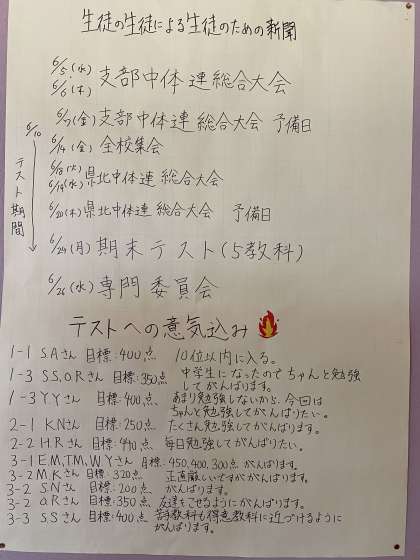 生徒の生徒による生徒のための新聞
6/5(水)
6/6(木) 支部中体連総合大会
6/7(金) 支部中体連総合大会 予備日
6/10
6/14(金) 全校集会
テスト期間
6/18(火)
6/19(水) 県北中体連総合大会
6/20(木) 県北中体連総合大会 予備日
6/24(月) 期末テスト(5教科)
6/26(水) 専門委員会
テストへの意気込み
1-1 S.Aさん 目標:400点 10位以内に入る。
1-3 S.S,O.Rさん 目標:350点 中学生になったのでちゃんと勉強
してがんばります。
1-3 Y.Yさん 目標:400点 あまり勉強しないから、今回は
ちゃんと勉強してがんばりたい。
2-1 K.Nさん 目標:250点 たくさん勉強してがんばります。
2-2 H.Rさん 目標:490点 毎日勉強してがんばりたい。
3-1 E.M,T.M,W.Yさん 目標:450,400,300点 がんばります。
3-2 M.Kさん 目標:320点 正直厳しいですががんばります。
3-2 S.Nさん 目標:200点 がんばります。
3-2 O.Rさん 目標:350点 友達をこせるようにがんばります。
3-3 S.Sさん 目標:400点 苦手教科も得意教科に近づけるように
がんばります。